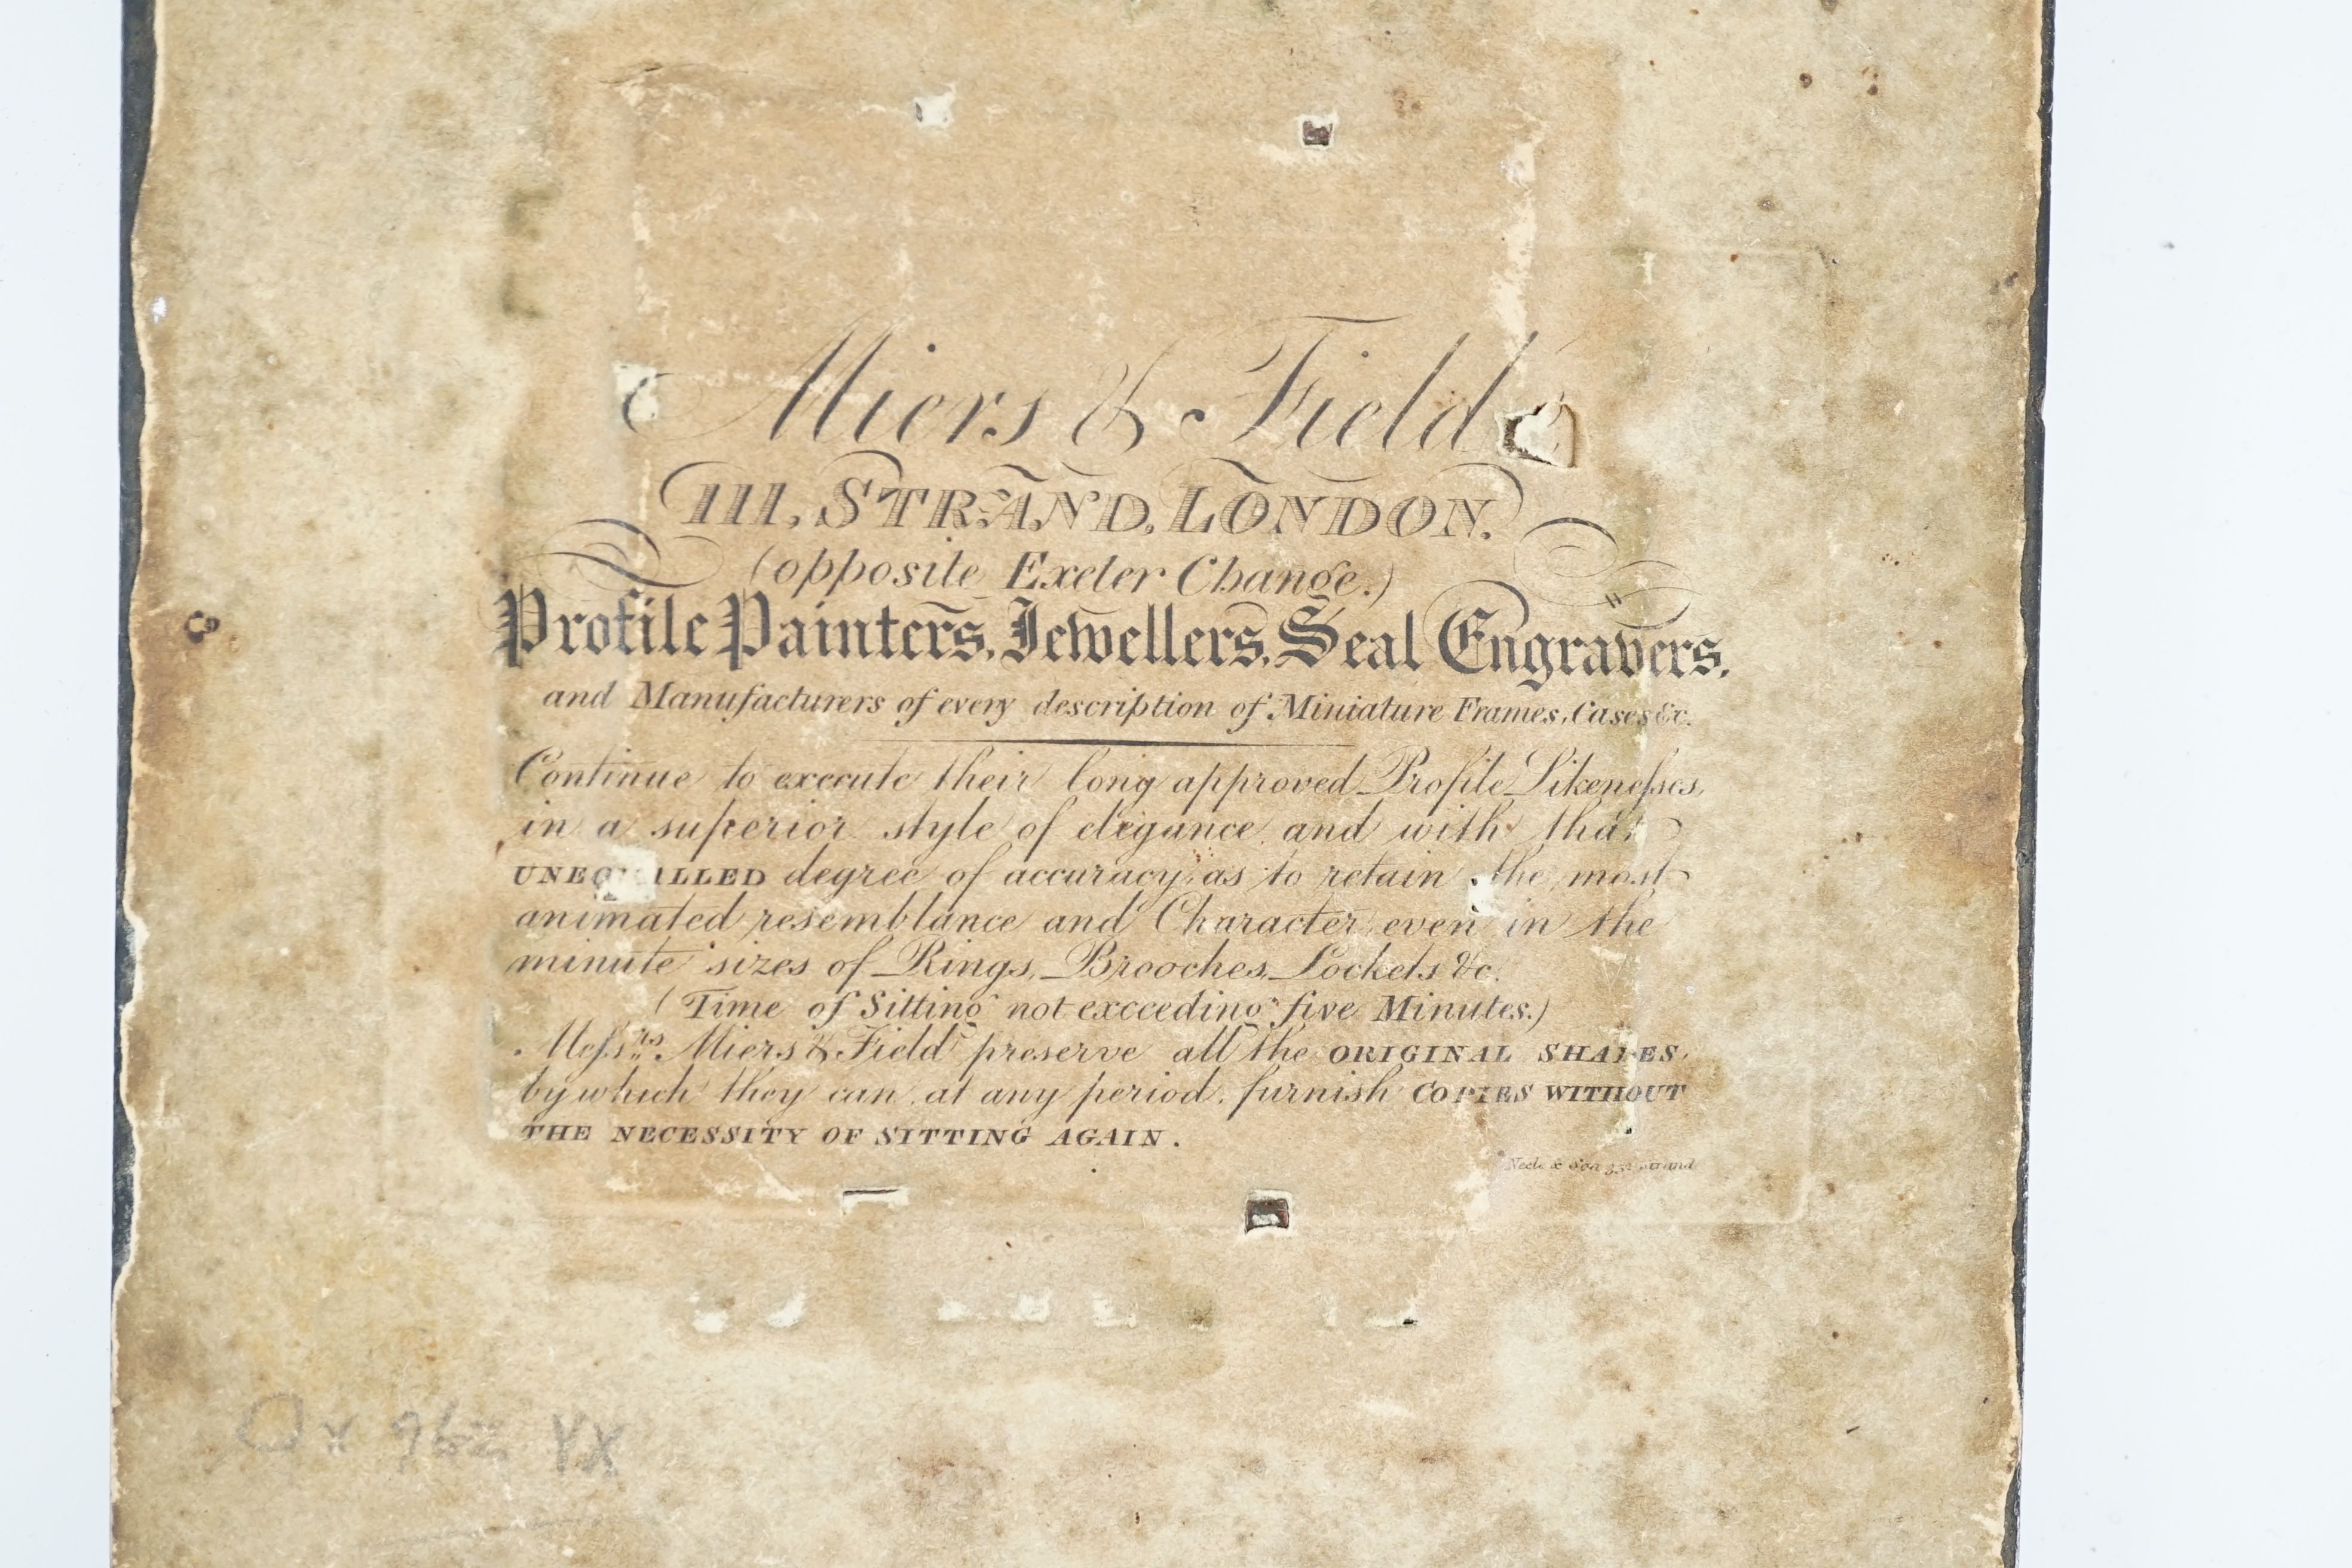 Miers & Field
111, STRAND, LONDON.
(opposite Exeter Change.)
Profile Painters, Jewellers, Seal Engravers,
and Manufacturers of every description of Miniature Frames, Cases &c.
Continue to execute their long approved Profile Likeneſses,
in a superior style of elegance and with that
UNEQUALLED degree of accuracy, as to retain the most
animated resemblance and Character even in the
minute sizes of Rings, Brooches, Lockets &c.
(Time of Sitting not exceeding five Minutes.)
Meſsrs. Miers & Field preserve all the ORIGINAL SHADES,
by which they can at any period, furnish COPIES WITHOUT
THE NECESSITY OF SITTING AGAIN.
Neele & Son 352 Strand